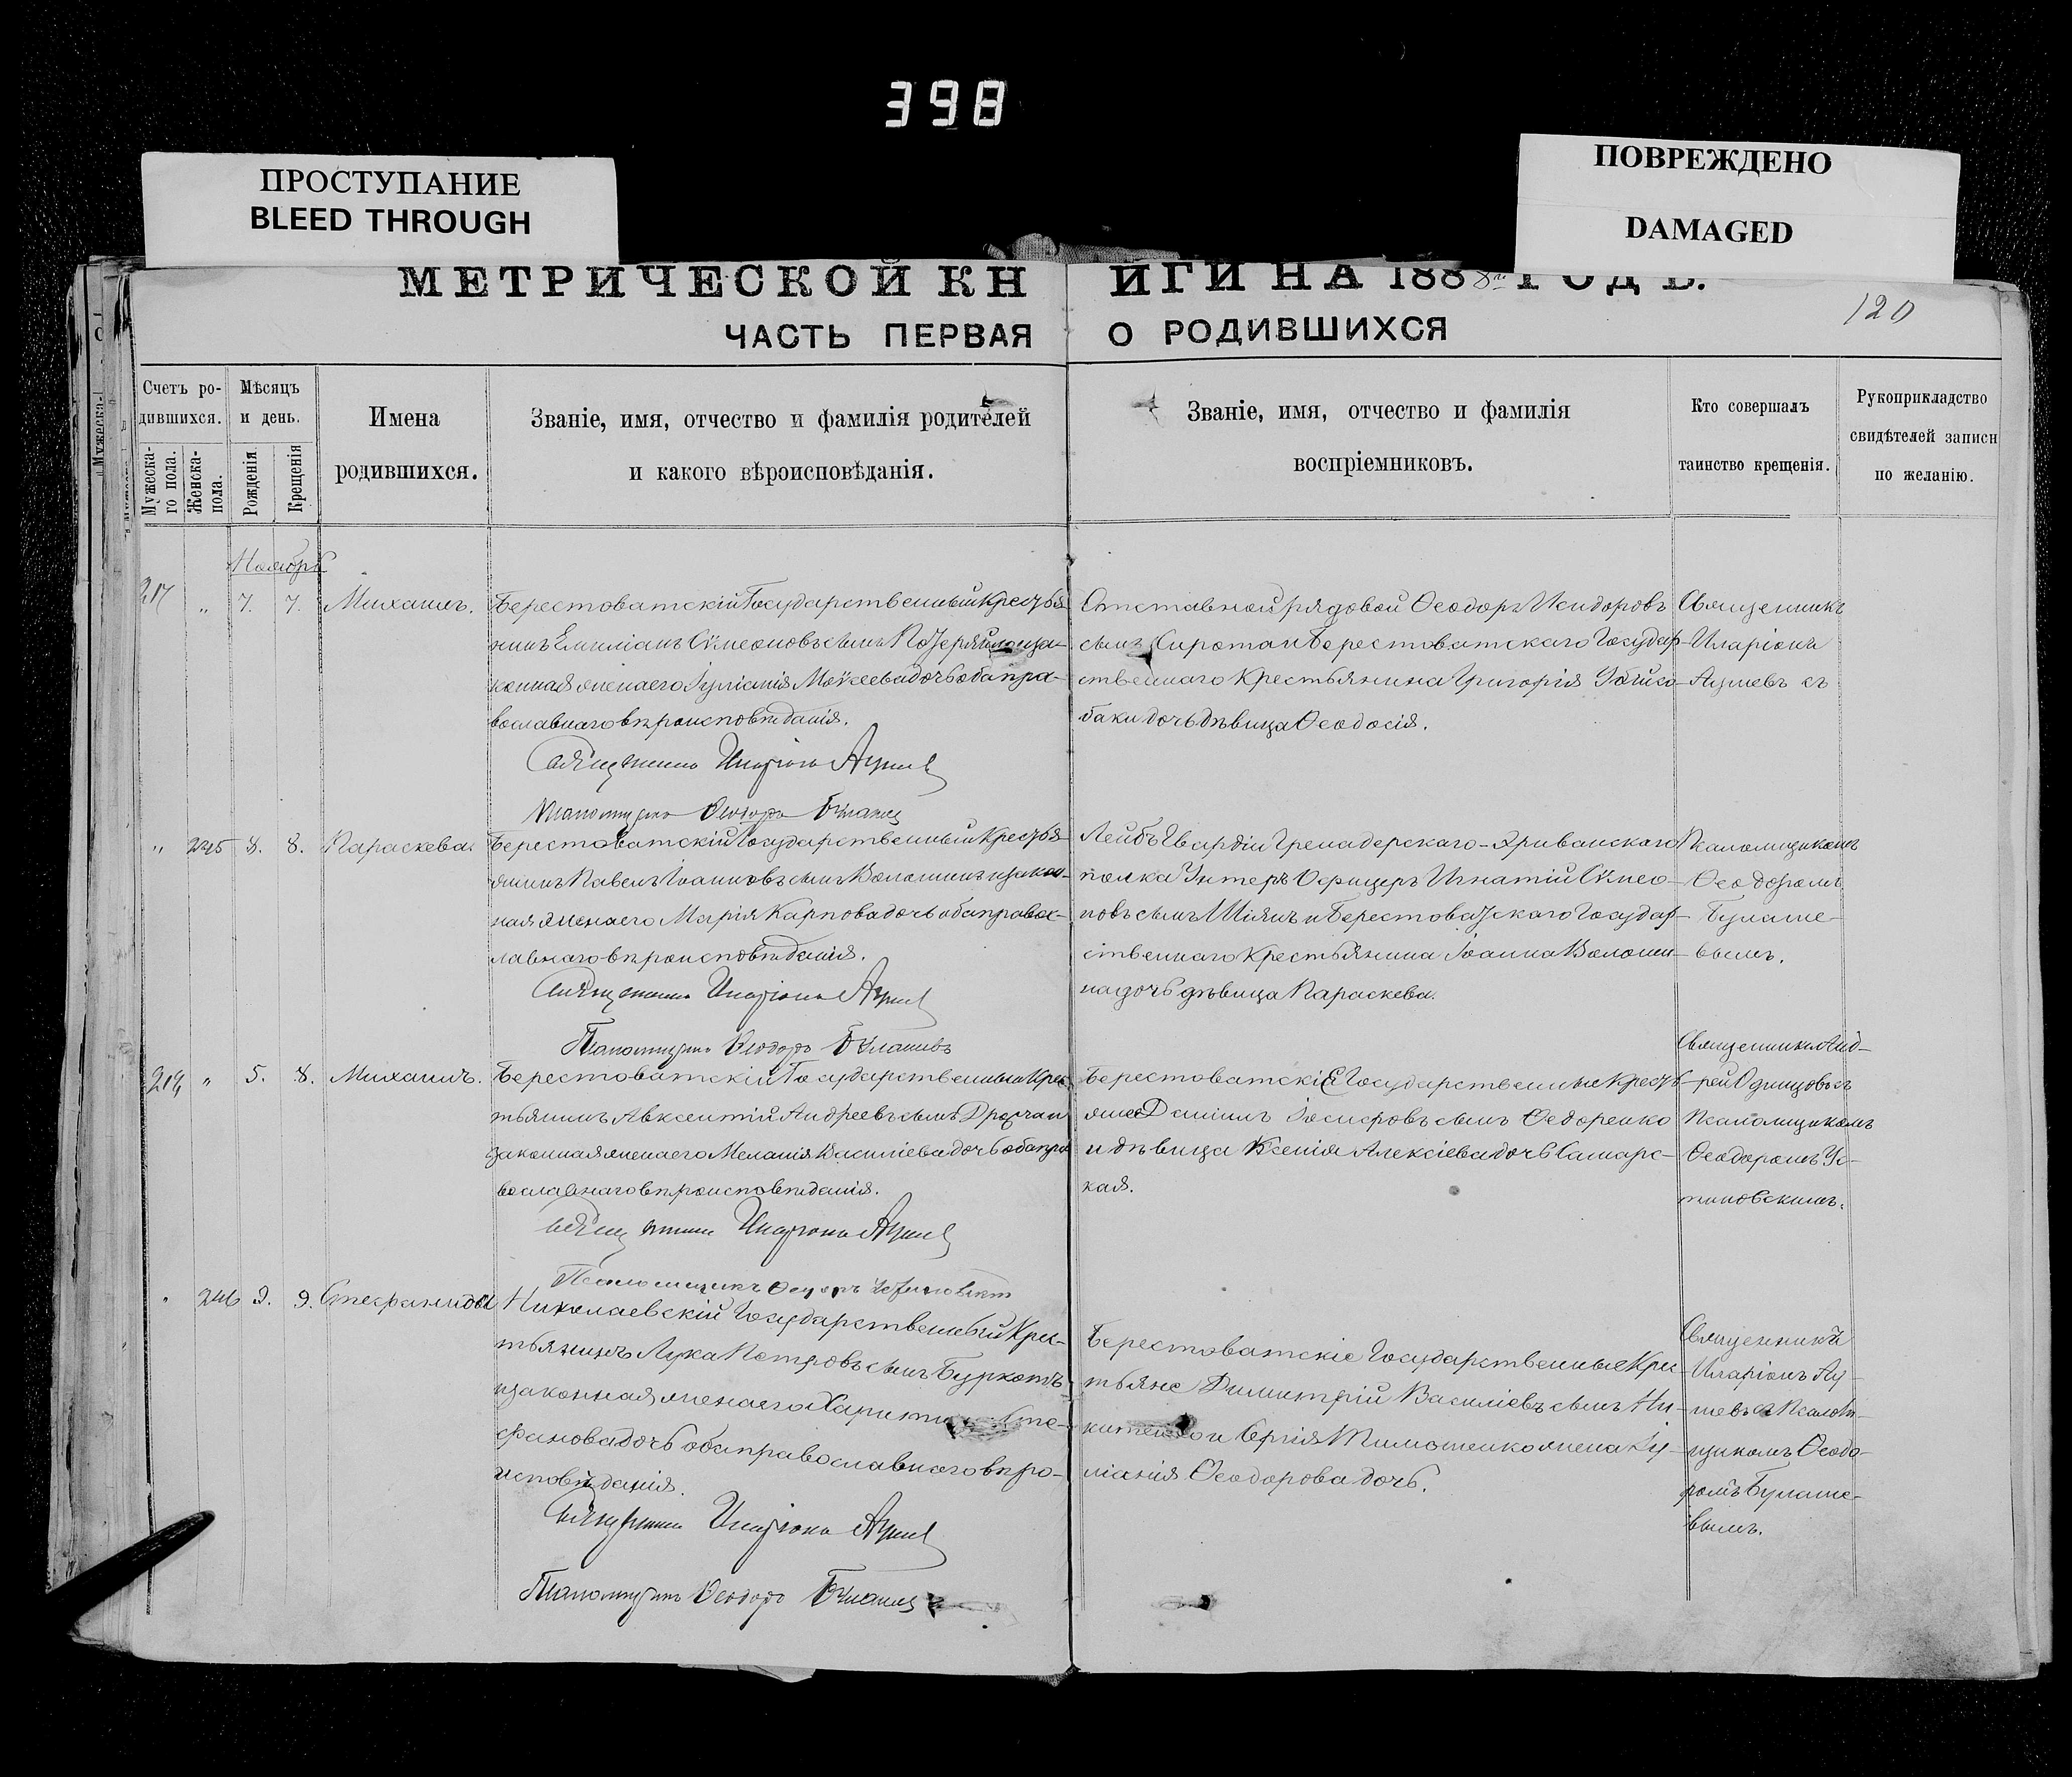 398
ПРОСТУПАНИЕ
BLEED THROUGH
ПОВРЕЖДЕНО
DAMAGED
МЕТРИЧЕСКОЙ КНИГИ НА 1888 ГОДЪ.
120
ЧАСТЬ ПЕРВАЯ О РОДИВШИХСЯ
Счетъ ро-
дившихся.
Мужеска-
го пола.
Женска-
пола.
Мѣсяцъ
и день.
Рожденія
Крещенія
Имена
родившихся.
Званіе, имя, отчество и фамилія родителей
и какого вѣроисповѣданія.
Званіе, имя, отчество и фамилія
воспріемниковъ.
Кто совершалъ
таинство крещенія.
Рукоприкладство
свидѣтелей записи
по желанію.
Ноябрь
217 " 7. 7. Михаилъ.
Берестоватскій Государственный Крестья-
нинъ Емиліанъ Сѵмеоновъ сынъ
конная жена его Іуліанія Моѵсеева дочь оба пра-
вославнаго вѣроисповѣданія.
Священникъ Иларіонъ
Псаломщикъ Ѳеодоръ
Отставной рядовой Ѳеодоръ Исидоровъ
сынъ Сирота и Берестоватскаго Государ-
ственнаго Крестьянина Григорія Убійсо-
баки дочь дѣвица Ѳеодосія.
Священникъ
Иларіонъ
съ
" 245 8. 8. Параскева.
Берестоватскій Государственный Крестья-
янинъ Павелъ Іоанновъ сынъ Волошинъ и закон-
ная жена его Марія Карпова дочь оба правос-
лавнаго вѣроисповѣданія.
Священникъ Иларіонъ
Псаломщикъ Ѳеодоръ
Лейбъ Гвардіи Гренадерскаго-Эриванскаго
полка Унтеръ Офицеръ Игнатій Сѵмео-
новъ сынъ Шіянъ и Берестоватскаго Государ-
ственнаго Крестьянина Іоанна Волоши-
на дочь дѣвица Параскева.
Псаломщикомъ
Ѳеодоромъ
Булаше-
вымъ.
" 5. 8. Михаилъ.
Берестоватскій Государственный Крес-
тьянинъ Авксентій Андреевъ сынъ
законная жена его Меланія Василіева дочь оба пра
вославнаго вѣроисповѣданія.
Священникъ Иларіонъ
Псаломщикъ Ѳеодоръ
Берестоватскіе Государственные Кресть-
яне Даніилъ Іосифовъ сынъ Ѳедоренко
и дѣвица Ксенія Алексіева дочь Самарс-
кая.
Священникъ Анд-
рей Одинцовъ съ
Псаломщикомъ
Ѳеодоромъ Ус-
тиновскимъ.
" 246 9. 9. Стефанида
Николаевскій Государственный Крес-
тьянинъ Лука Петровъ сынъ Буркотъ
и законная жена его Сте-
фанова дочь оба православнаго вѣро-
исповѣданія.
Священникъ Иларіонъ
Псаломщикъ Ѳеодоръ
Берестоватскіе Государственные Крес
тьяне Димитрій Василіевъ сынъ Ни-
и Сергія Тимошенко жена Іу-
ліанія Ѳеодорова дочь.
Священникъ
Иларіонъ
Псалом-
щикомъ Ѳеодо-
ромъ Булаше-
вымъ.